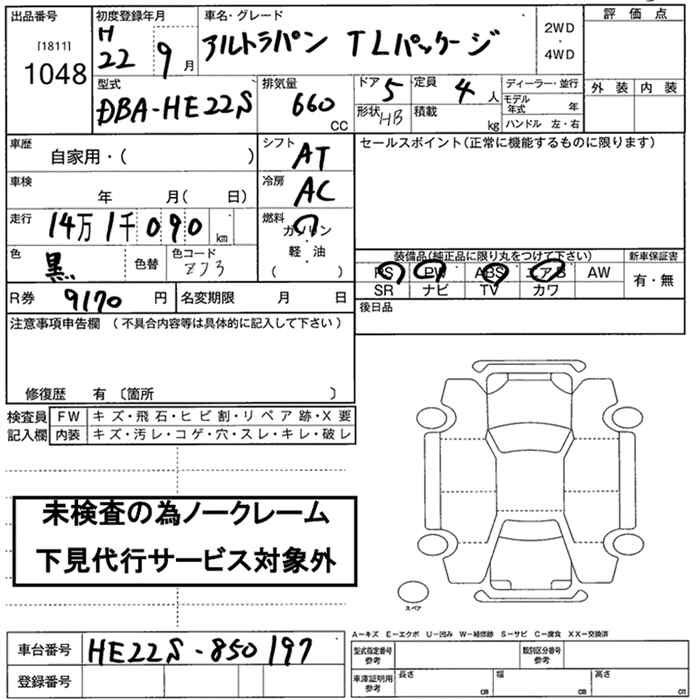 出品番号 初度登録年月 車名・グレード 評価点
[1811] 1048 H22 9月 アルトラパン TLパッケージ 2WD・4WD
外装 内装
型式 排気量 ドア 5 定員 4人 ディーラー・並行
DBA-HE22S 660 CC 形状 HB 積載 kg モデル年式 年
ハンドル 左・右
車歴 自家用・( ) シフト AT セールスポイント(正常に機能するものに限ります)
車検 年 月( 日) 冷房 AC
走行 14万1千090 km 燃料 ガソリン・軽・油 ( )
色 黒 色替 色コード Z73
装備品(純正品に限り丸をつけて下さい) 新車保証書
PS PW ABS エアB AW 有・無
SR ナビ TV カワ
R券 9170 円 名変期限 月 日 後日品
注意事項申告欄 (不具合内容等は具体的に記入して下さい)
修復歴 有 〔箇所 〕
検査員 FW キズ・飛石・ヒビ割・リペア跡・X要
記入欄 内装 キズ・汚レ・コゲ・穴・スレ・キレ・破レ
未検査の為ノークレーム
下見代行サービス対象外
スペア
A−キズ E−エクボ U−凹み W−補修跡 S−サビ C−腐食 XX−交換済
車台番号 HE22S-850197 型式指定番号 参考 類別区分番号 参考
登録番号 車庫証明用 参考 長さ cm 幅 cm 高さ cm